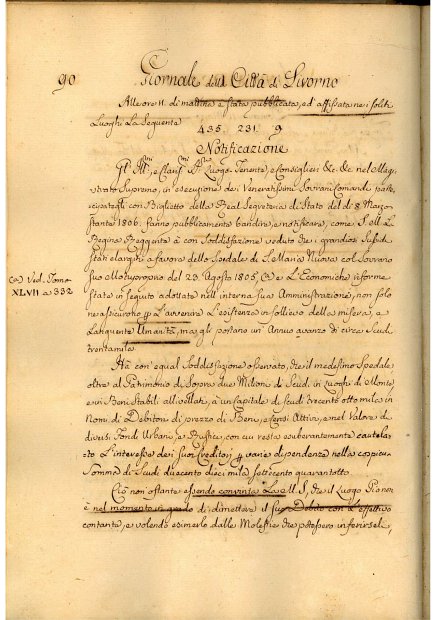 90
Giornale della Città di Livorno
Alle ore 11. di mattina è stata pubblicata, ed affissata nei soliti
Luoghi La Seguente
435. 231. 9
Notificazione
Gl' Ill:mi, e Clar:mi Luogo-Tenente, e Consiglieri &c. &c. nel Magi,
strato Supremo, in esecuzione dei Veneratissimi Sovrani Comandi parte,
cipatigli con Biglietto della Real Segreteria di Stato del dì 8 Marzo
stante 1806. fanno pubblicamente bandire, e notificare, come S. M. La
Regina Reggente à con Soddisfazione veduto che i grandiosi Sussi,
sti elargiti a favore dello Spedale di S. Maria Nuova col Sovrano
suo Motuproprio del 23. Agosto 1805, (a) e L'Economiche riforme
state in seguito adottate nell'interna sua Amministrazione, non solo
ne assicurano p L'avvenire L'esistenza in sollievo della misera, e
Languente Umanità, ma gli portano un Annuo avanzo di circa Scudi
trentamila
(a) Ved. Tomo
XLVII a 332
Ha con egual Soddisfazione osservato, che il medesimo Spedale
oltre al Patrimonio di Sopra due Milioni di Scudi, in Luoghi di Monte,
e in Beni Stabili allivellati, à un Capitale di scudi trecentottomila in
Nomi, di Debitori di prezzo di Beni, e Censi Attivi, e nel Valore di
diversi Fondi Urbani, e Rustici, con cui resta esuberantemente cautela,
to L'interesse dei suoi Creditori p varie dipendenze nella
Somma di Scudi duecento dieci mila settecento quarantotto
Ciò non ostante essendo convinta La M. S., che il Luogo Pio non
è nel momento in grado di dimettere il suo Debito con L'effettivo
contante, e volendo esimerlo dalle Molestie che potessero inferirseli,